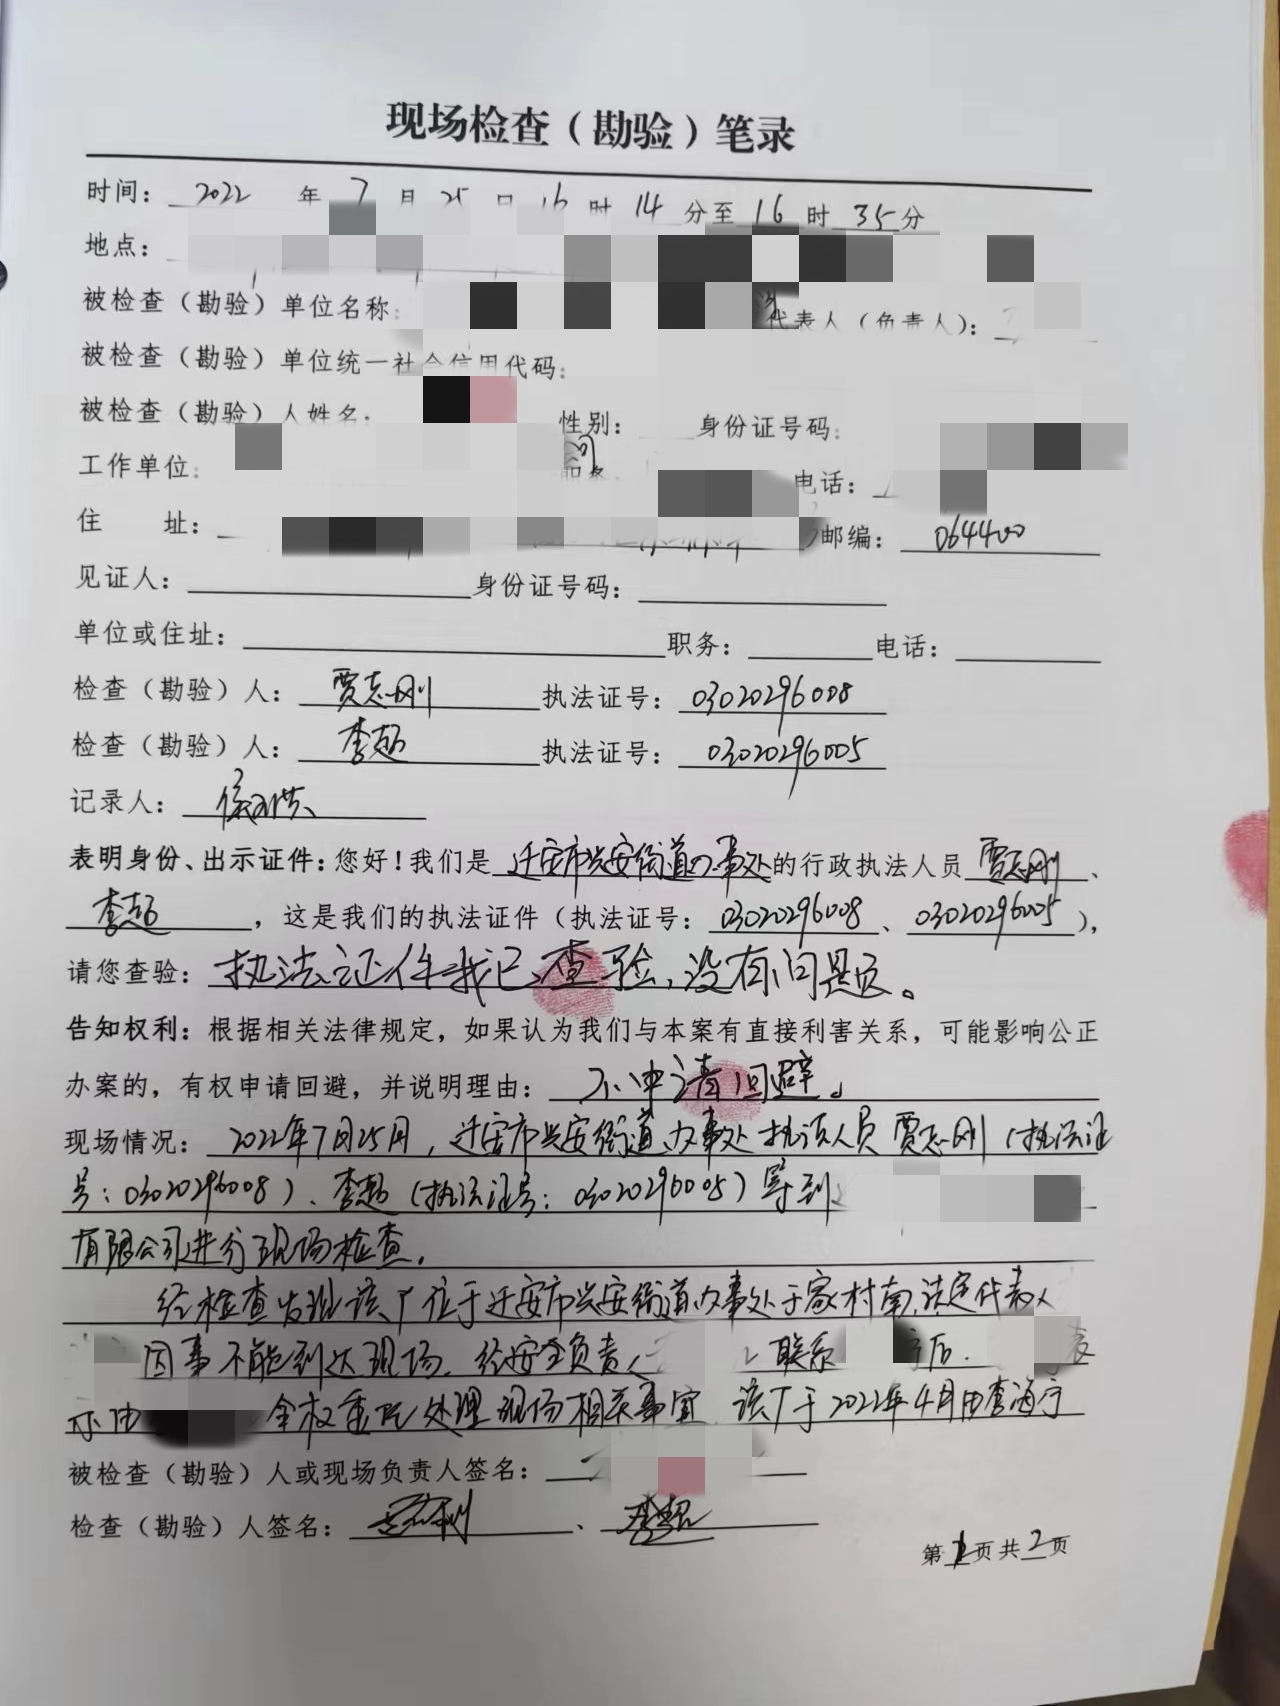 现场检查（勘验）笔录
时间：2022年7月25日16时14分至16时35分
地点：
被检查（勘验）单位名称：代表人（负责人）：
被检查（勘验）单位统一社会信用代码：
被检查（勘验）人姓名：性别：身份证号码：
工作单位：职务：电话：
住 址：邮编：064400
见证人：身份证号码：
单位或住址：职务：电话：
检查（勘验）人：贾志刚 执法证号：03020296008
检查（勘验）人：李超 执法证号：03020296005
记录人：
表明身份、出示证件：您好！我们是迁安市兴安街道办事处的行政执法人员贾志刚、
李超，这是我们的执法证件（执法证号：03020296008、03020296005），
请您查验：执法证件我已查验，没有问题。
告知权利：根据相关法律规定，如果认为我们与本案有直接利害关系，可能影响公正
办案的，有权申请回避，并说明理由：不申请回避。
现场情况：2022年7月25日，迁安市兴安街道办事处执法人员贾志刚（执法证
号：03020296008）、李超（执法证号：03020296005）等到
有限公司进行现场检查。
经检查发现该厂位于迁安市兴安街道办事处于家村南，法定代表人
因事不能到达现场，经安全负责人联系后，表
示由全权委托处理现场相关事宜，该厂于2022年4月由李海宁
被检查（勘验）人或现场负责人签名：
检查（勘验）人签名：贾志刚、李超
第1页共2页